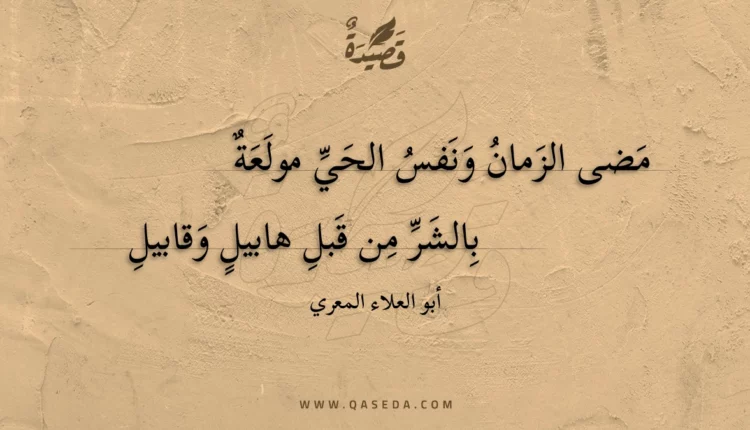 قَصِيدَةٌ
مَضى الزَمانُ وَنَفسُ الحَيِّ مولَعَةٌ
بِالشَرِّ مِن قَبلِ هابيلٍ وَقابيلِ
أبو العلاء المعري
WWW.QASEDA.COM